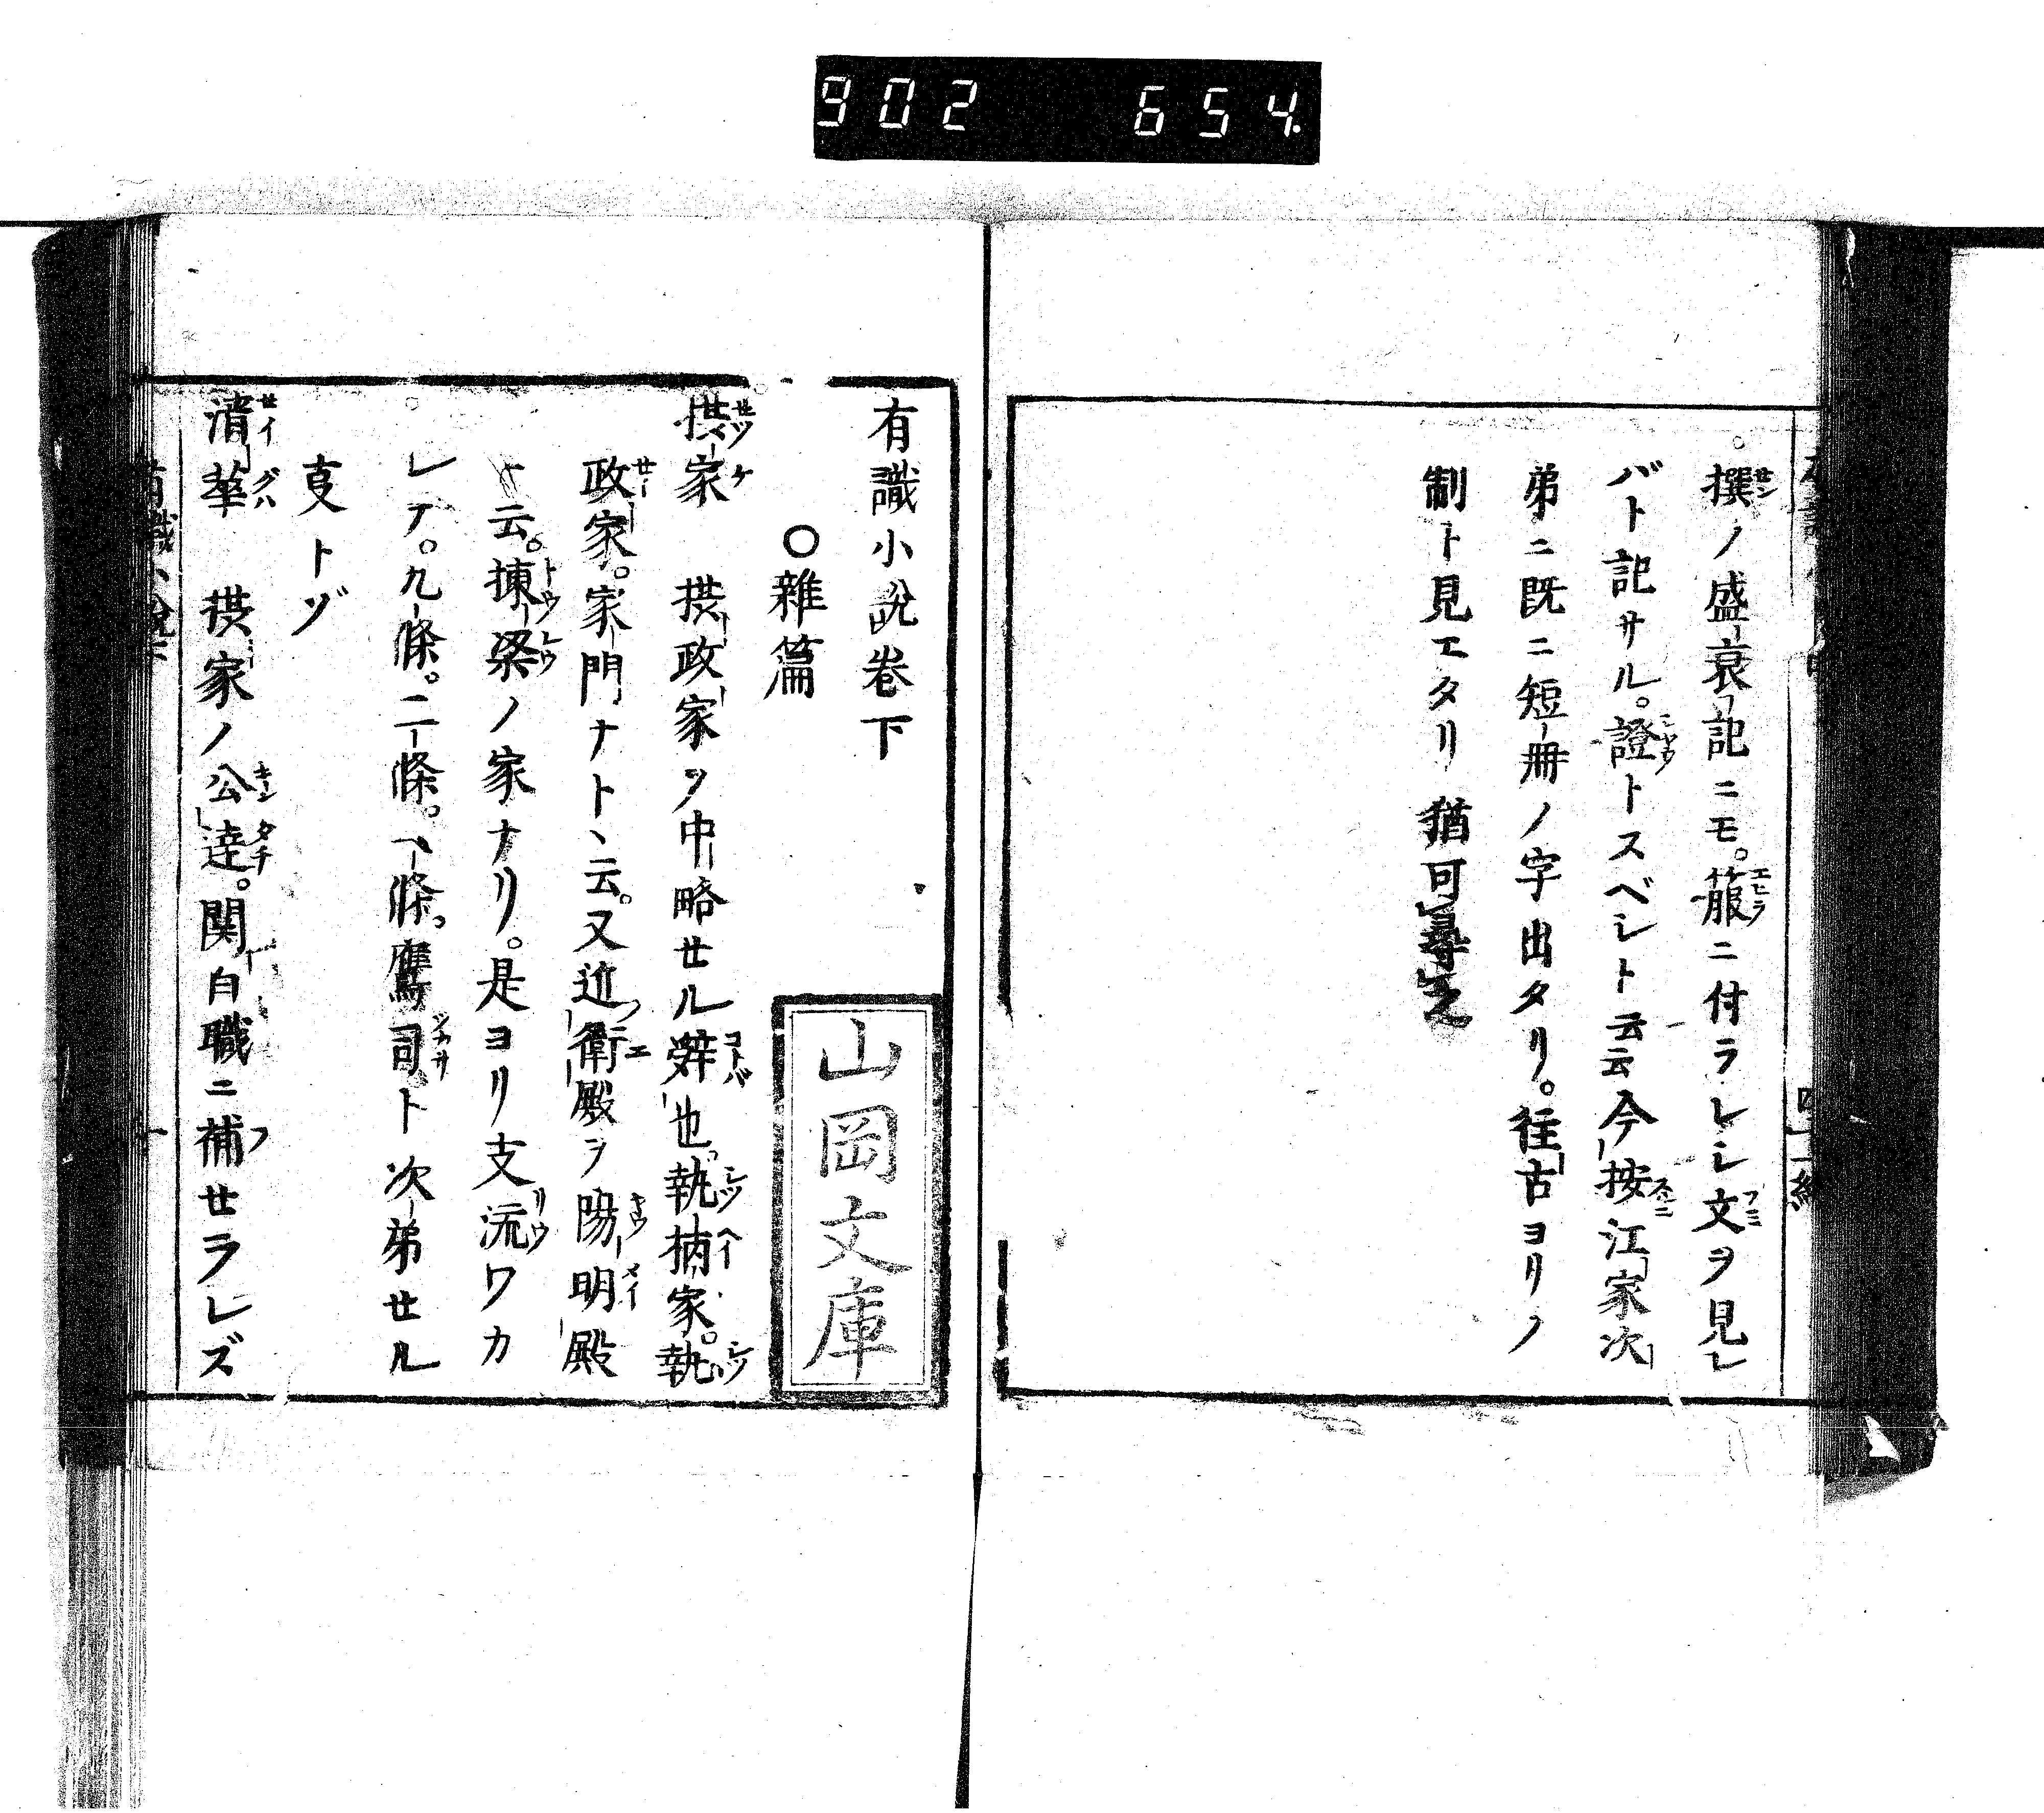 902 654.
撰ノ盛衰記ニモ。箙ニ付ラレシ文ヲ見レ
バト記サル。證トスベシト云云今按江家次
弟ニ既ニ短冊ノ字出タリ。往古ヨリノ
制ト見エタリ猶可尋之
有識小説巻下
〇雜篇
摂家 摂政家ヲ中略せル辤也。執柄家。執
政家。家門ナト丶云。又近衛殿ヲ陽明殿
ト云。棟梁ノ家ナリ。是ヨリ支流ワカ
レテ。九條。二條。一條。鷹司ト次弟せル
叓トゾ
清華 摂家ノ公達。関白職ニ補せラレズ
山岡文庫